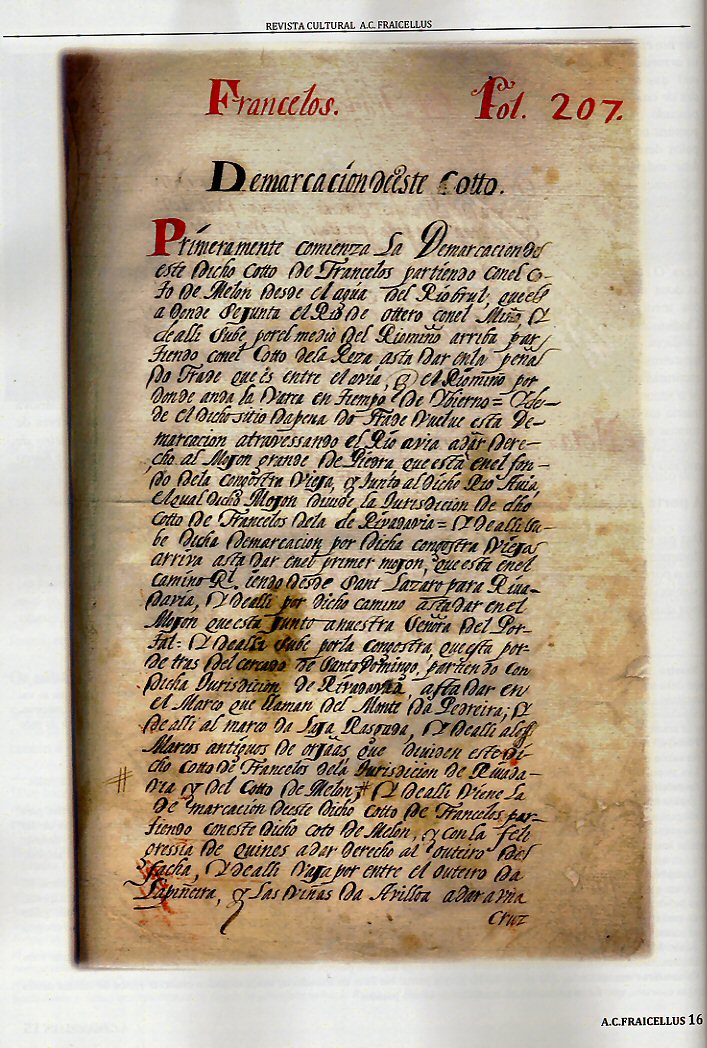 REVISTA CULTURAL A.C. FRAICELLUS
Francelos. Fol. 207.
Demarcación deeste Cotto.
Primeramente comienza La Demarcacion de
este dicho Cotto de Francelos partiendo conel Co-
to de Melon desde el agua del Riobrul, que es
a donde sejunta el Rio de ottero conel Miño, Y
dealli sube porel medio del Riomiño arriba par
tiendo conel Cotto dela Reza asta dar enla pena
do Frade que es entre el avia, y el Riomiño por
donde anda la Varca en tiempo de Ybierno= Y des-
de el dicho sitio dapena do Frade Vuelue esta De-
marcacion atravessando el Rio avia adar dere-
cho al Mojon grande de Piedra que esta enel fon-
do dela congostra Vieja, y Junto al dicho Rio Auia,
elqual dicho Mojon diuide la Jurisdicion de dho
Cotto de Francelos dela de Rivadavia= Y dealli su-
be dicha demarcacion por dicha congostra Vieja
arriva asta dar enel primer mojon, que esta enel
camino Rl. iendo desde sant Lazaro para Riua-
davia, Y dealli por dicho camino asta dar en el
Mojon questa junto a nuestra Señora del Por-
tal= Y dealla sube porla congostra questa por
de tras del cercado de Santo Domingo, partiendo con
dicha Jurisdicion de Rivadavia, asta dar en
el Marco que llaman del Monte da Pedreira; Y
de alli al marco da Laja Rasgada, Y dealli alos
Marcos antiguos de orjaas que dividen este di
cho Cotto de Francelos dela Jurisdicion de Riuada-
via y del Cotto de Melon, # Y dealli viene La
de marcación deeste dicho Cotto de Francelos par-
tiendo coneste dicho coto de Melon, y con la feli
gressia de quines adar derecho al outeiro del
facha, Y dealli Vaja por entre el outeiro da
Lapiñeira, y Las viñas da Arilloa adar a vna
cruz
A.C.FRAICELLUS 16